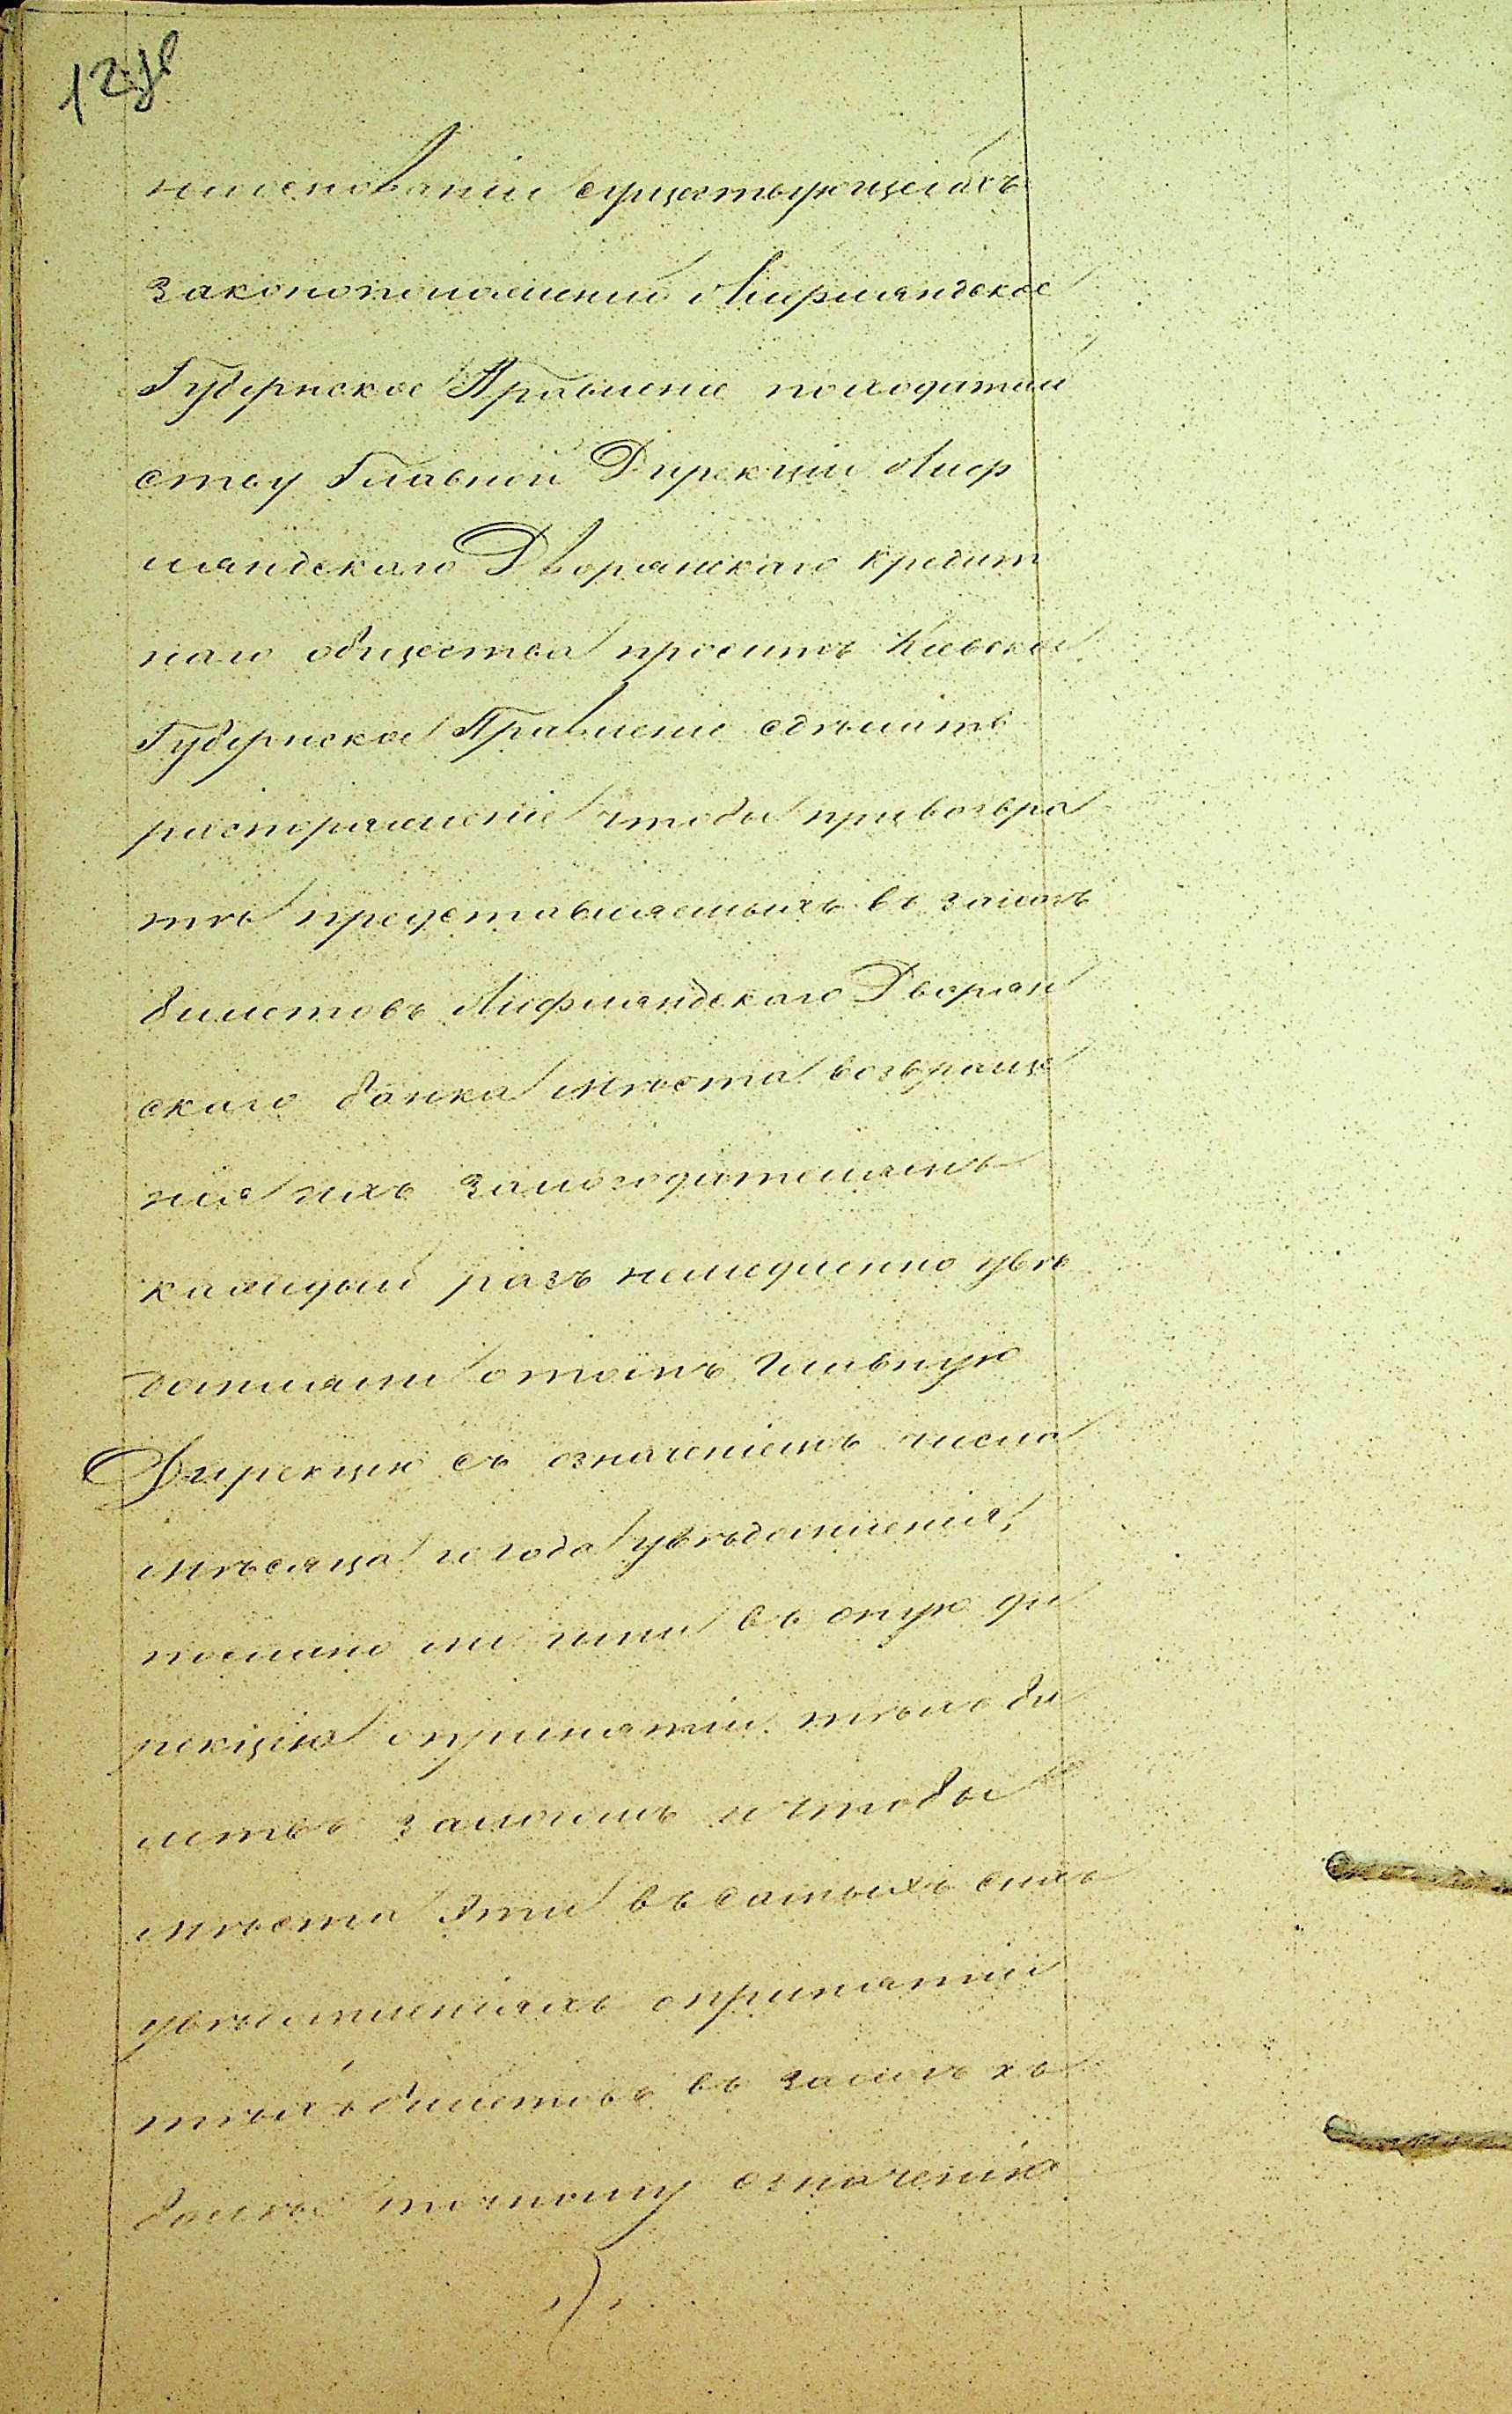 12 об
наоснованіи существующихъ
законоположеній Лифляндское
Губернское Правленіе походатай
ству Главной Дирекціи Лиф
ляндскаго Дворянскаго кредит
наго общества проситъ Киевское
Губернское Правленіе сдѣлать
распоряженіе чтобы привозвра
тѣ представляемыхъ въ залогъ
билетовъ Лифляндскаго Дворян
скаго банка мѣста возвраще
ніе ихъ залогодателямъ
каждый разъ немедленно увѣ
домляли отомъ Главную
Дирекцію съ означеніемъ числа
мѣсяца и года увѣдомленія,
послано ли ими въ оную ди
рекцію опринятіи тѣхъ би
летовъ залогомъ и чтобы
мѣста эти въ самыхъ сихъ
увѣдомленіяхъ опринятіи
тѣхъ билетовъ въ залогъ къ
болѣе точному означенію